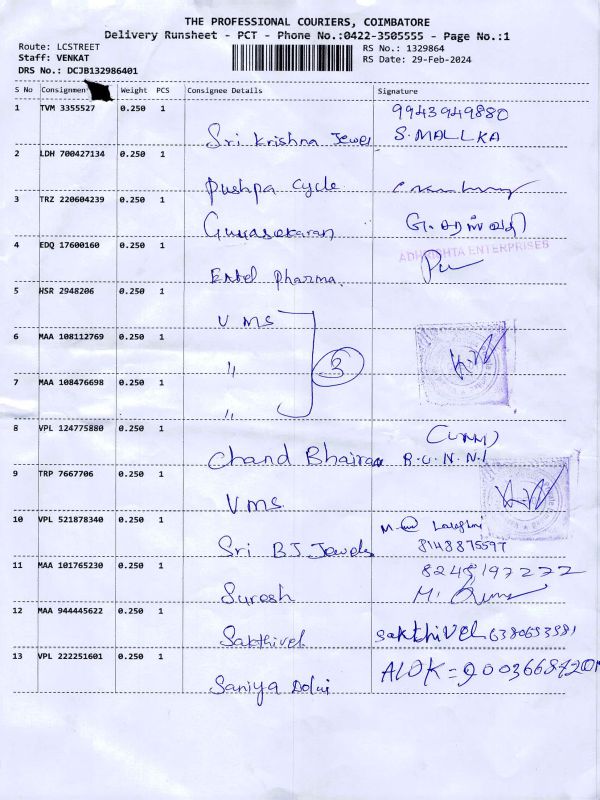 THE PROFESSIONAL COURIERS, COIMBATORE
Delivery Runsheet - PCT - Phone No.:0422-3505555 - Page No.:1
Route: LCSTREET
RS No.: 1329864
Staff: VENKAT
RS Date: 29-Feb-2024
DRS No.: DCJB132986401
S No Consignment Weight PCS Consignee Details Signature
1 TVM 3355527 0.250 1 Sri Krishna Jewels 9943949880
S. MALLKA
2 LDH 700427134 0.250 1 Pushpa Cycle
3 TRZ 220604239 0.250 1 Gunasekaran
4 EDQ 17600160 0.250 1 Entel Pharma.
ADHRISHTA ENTERPRISES
5 HSR 2948206 0.250 1 V ms
6 MAA 108112769 0.250 1 〃
3
7 MAA 108476698 0.250 1 〃
8 VPL 124775880 0.250 1 Chand Bhairav B.U.N.N.I
9 TRP 7667706 0.250 1 V ms
10 VPL 521878340 0.250 1 Sri BJ Jewels
8148875597
11 MAA 101765230 0.250 1 Suresh 8248197272
12 MAA 944445622 0.250 1 Sakthivel Sakthivel 6380653981
13 VPL 222251601 0.250 1 Saniya Dolui ALOK =